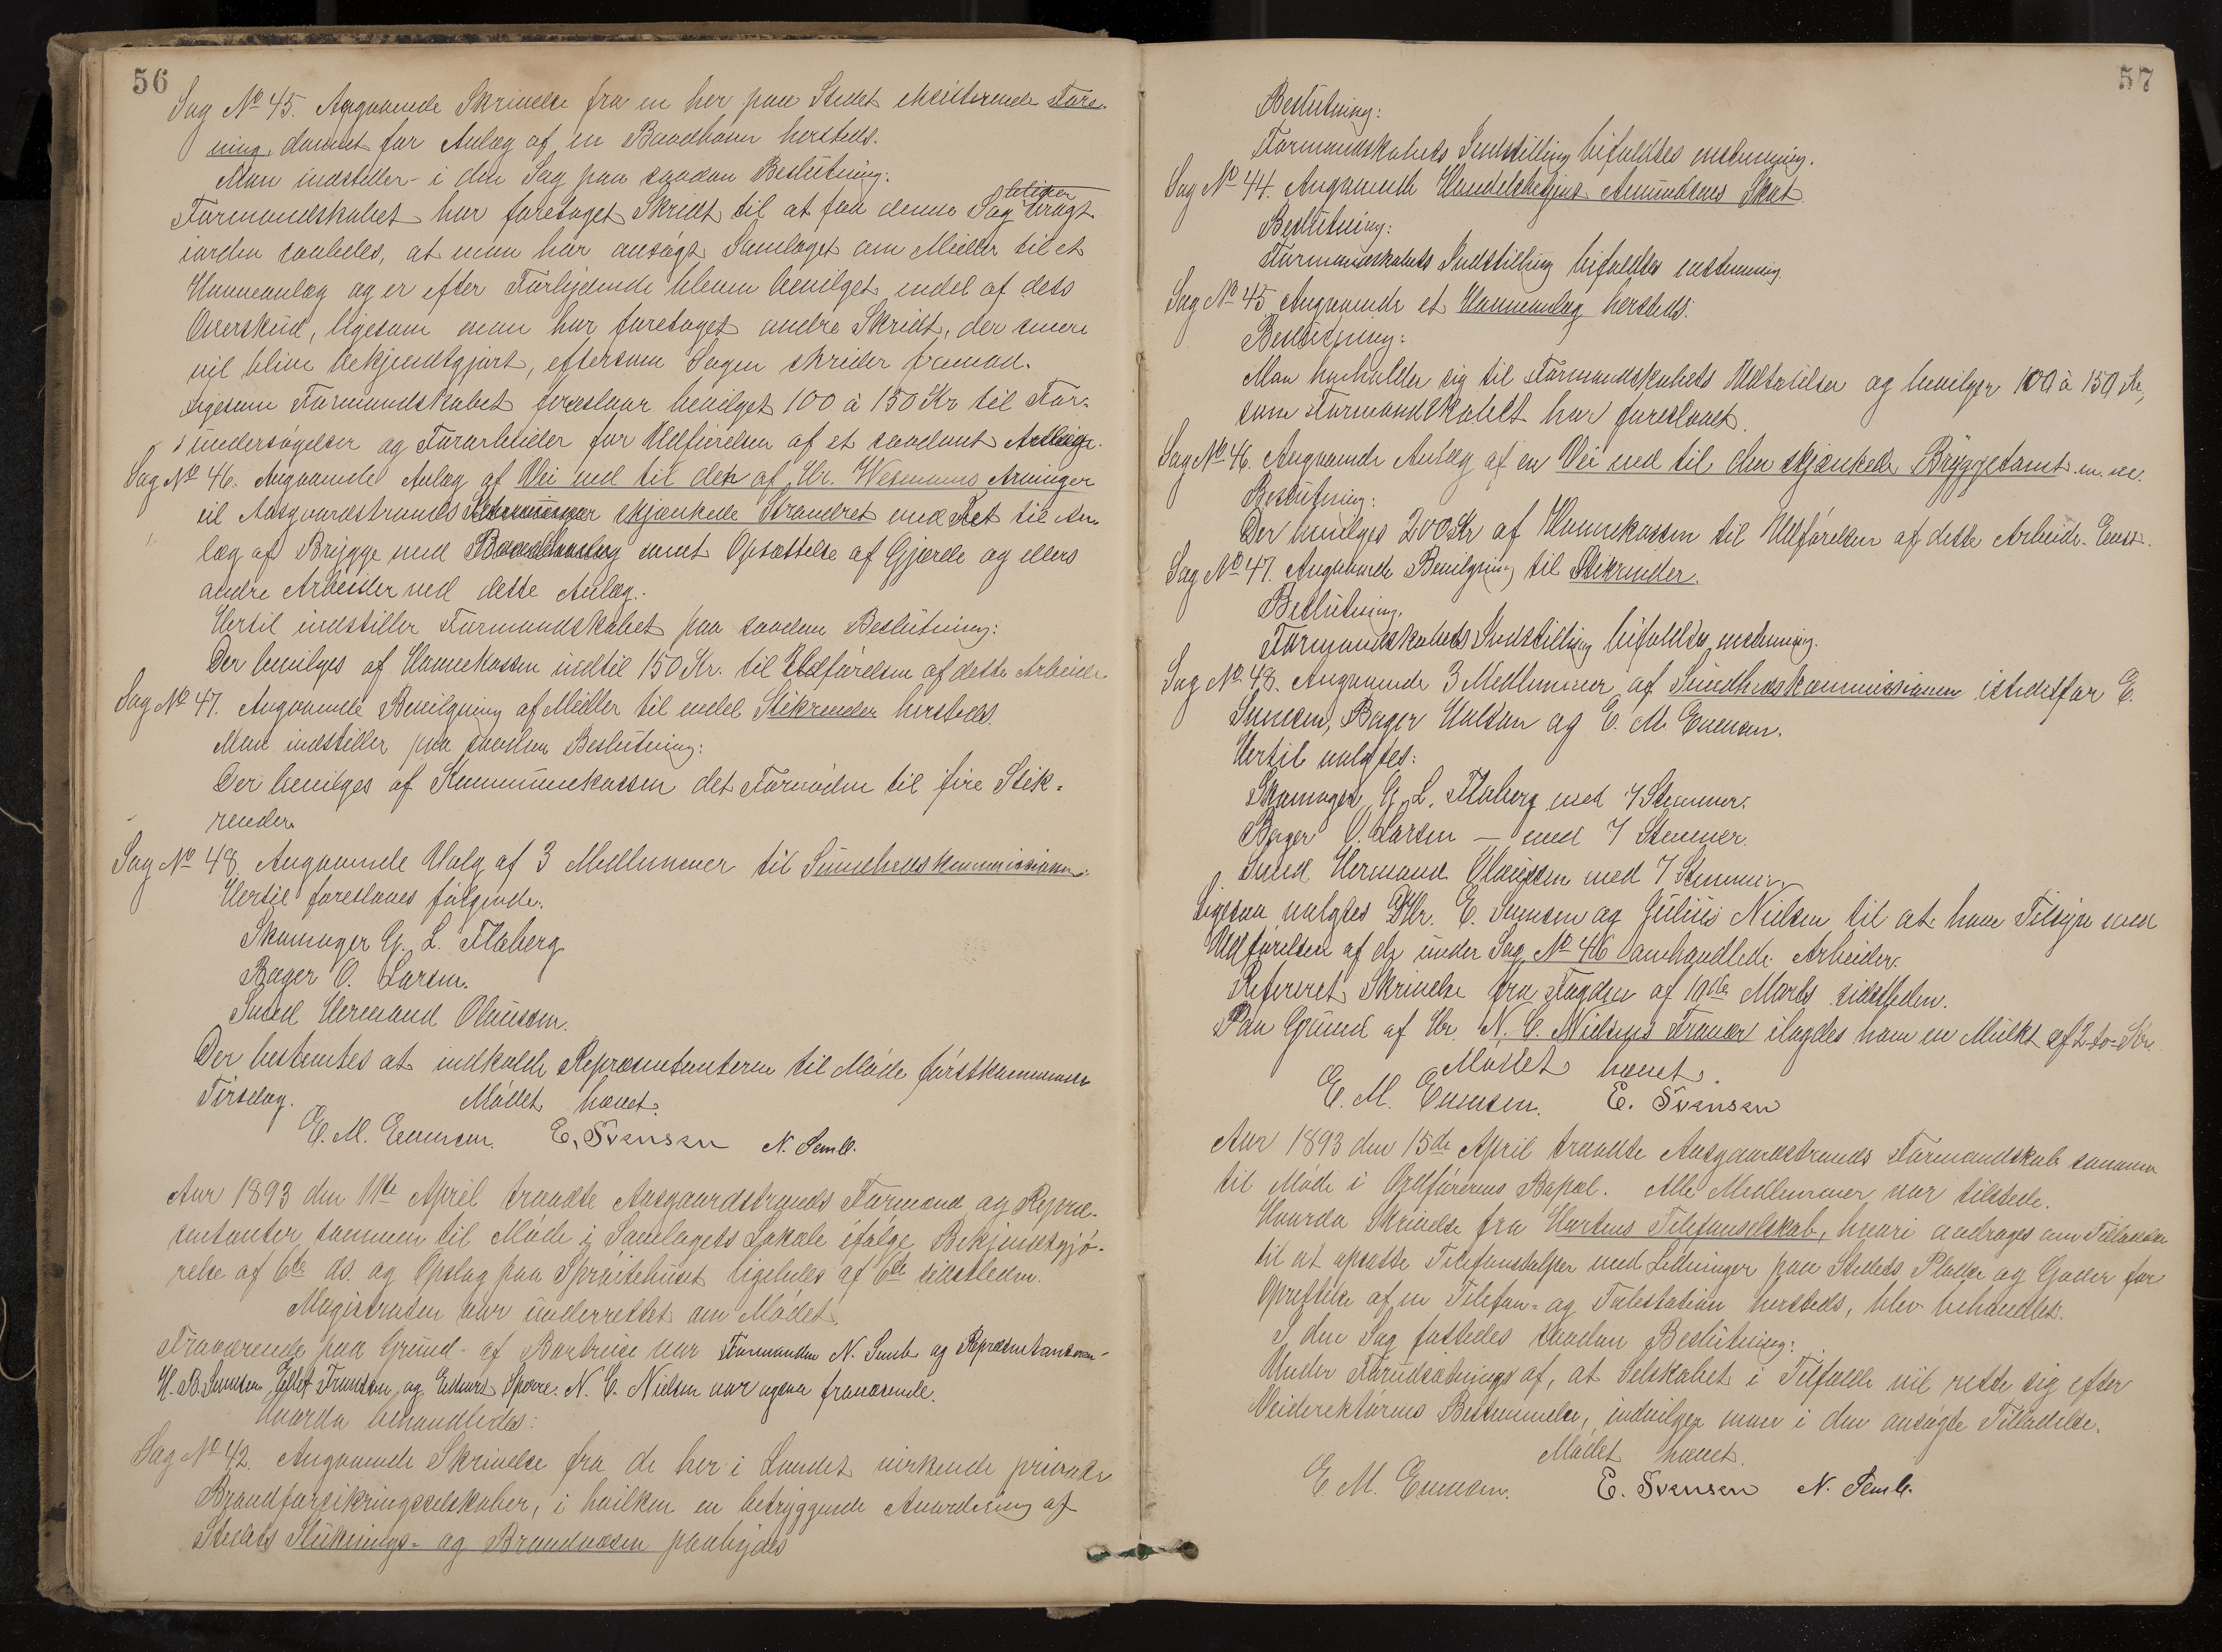 56
Sag No 45. Angaaende Skrivelse fra en her paa Stedet existerende Fore-
ning, dannet for Anlæg af en Baadhavn hersteds.
Man indstiller i den Sag paa saadan Beslutning:
Formandskabet har foretaget Skridt til at faa denne Sag bragt
iorden saaledes, at man har ansøgt Samlaget om Midler til et
Havneanlæg og er efter Forlydende bleven bevilget endel af dets
Overskud, ligesom man har foretaget andre Skridt, der senere
vil blive bekjendtgjort, eftersom Sagen skrider fremad.
Ligesom Formandskabet foreslaar bevilget 100 à 150 Kr til For-
undersøgelser og Forarbeider for Udførelsen af et saadant Anlæg.
Sag No 46. Angaaende Anlæg af Vei ned til den af Hr. Wesmanns Arvinger
til Aasgaardstrands skjænkede Strandret med Ret til An-
læg af Brygge med samt Opsættelse af Gjærde og ellers
andre Arbeider ved dette Anlæg.
Hertil indstiller Formandskabet paa saadan Beslutning:
Der bevilges af Havnekassen indtil 150 Kr. til Udførelsen af dette Arbeide.
Sag No 47. Angaaende Bevilgning af Midler til endel Stikrender hersteds.
Man indstiller paa saadan Beslutning:
Der bevilges af Kommunekassen det Fornødne til fire Stik-
render.
Sag No 48. Angaaende Valg af 3 Medlemmer til Sundhedskommissionen.
Hertil foreslaaes følgende.
Skomager G. L. Flaberg
Bager O. Larsen.
Smed Hermand Olausson.
Der bestemtes at indkalde Repræsentanterne til Møde førstkommende
Tirsdag. Mødet hævet.
E. M. Evensen. E. Svensen N. Semb.
Aar 1893 den 11te April traadte Aasgaardstrands Formænd og Repræ-
sentanter sammen til Møde i Samlagets Lokale ifølge Bekjendtgjø-
relse af 6te ds. og Opslag paa Sprøitehuset ligeledes af 6te sidstleden.
Magistraten var underrettet om Mødet.
Fraværende paa Grund af Bortreise var Formanden N. Semb og Repræsentanterne
H. B. Svensen, Ellef Frantsen, og Edvard Sporre. N. C. Nielsen var ogsaa fraværende.
Hvorda behandledes:
Sag No 42. Angaaende Skrivelse fra de her i Landet virkende private
Brandforsikringsselskaber, i hvilken en betryggende Anordning af
Stedets Sluknings- og Brandvæsen paabydes
57
Beslutning:
Formandskabets Indstilling bifaldtes enstemmig.
Sag No 44. Angaaende Handelsbetjent Amundsens Skat.
Beslutning:
Formandskabets Indstilling bifaldtes enstemmig.
Sag No 45 Angaaende et Havneanlæg hersteds.
Beslutning:
Man henholder sig til Formandskabets Udtalelser og bevilger 100 à 150 Kr,
som Formandskabet har foreslaaet.
Sag No 46. Angaaende Anlæg af en Vei ned til den skjænkede Bryggetomt m. m.
Beslutning:
Der bevilges 200 Kr af Havnekassen til Udførelsen af dette Arbeide. Enst.
Sag No 47. Angaaende Bevilgning til Stikrender.
Beslutning.
Formandskabets Indstilling bifaldtes enstemmig.
Sag No 48. Angaaende 3 Medlemmer af Sundhedskommissionen istedetfor E.
Svensen, Bager Halsen og E. M. Evensen.
Hertil valgtes:
Skomager G. L. Flaberg med 7 Stemmer.
Bager O. Larsen — med 7 Stemmer.
Smed Hermand Olausson med 7 Stemmer.
Ligesaa valgtes DHr. E. Svensen og Julius Nielsen til at have Tilsyn med
Udførelsen af de under Sag No 46 omhandlede Arbeider.
Refereret Skrivelse fra Fogden af 10de Marts sidstleden.
Paa Grund af Hr. N. C. Nielsens Fravær ilagdes ham en Mulkt af 2-to-Kr.
Mødet hævet.
E. M. Evensen. E. Svensen
Aar 1893 den 15de April traadte Aasgaardstrands Formandskab sammen
til Møde i Ordførerens Bopæl. Alle Medlemmer var tilstede.
Hvorda Skrivelse fra Hortens Telefonselskab, hvori andrages om Tilladelse
til at opsætte Telefonstolper med Ledninger paa Stedets Pladse og Gader for
Oprettelse af en Telefon- og Talestation hersteds, blev behandlet.
I den Sag fattedes saadan Beslutning:
Under Forudsætning af, at Selskabet i Tilfælde vil rette sig efter
Veidirektørens Bestemmelse, indvilger man i den ansøgte Tilladelse.
Mødet hævet.
E. M. Evensen. E. Svensen N. Semb.